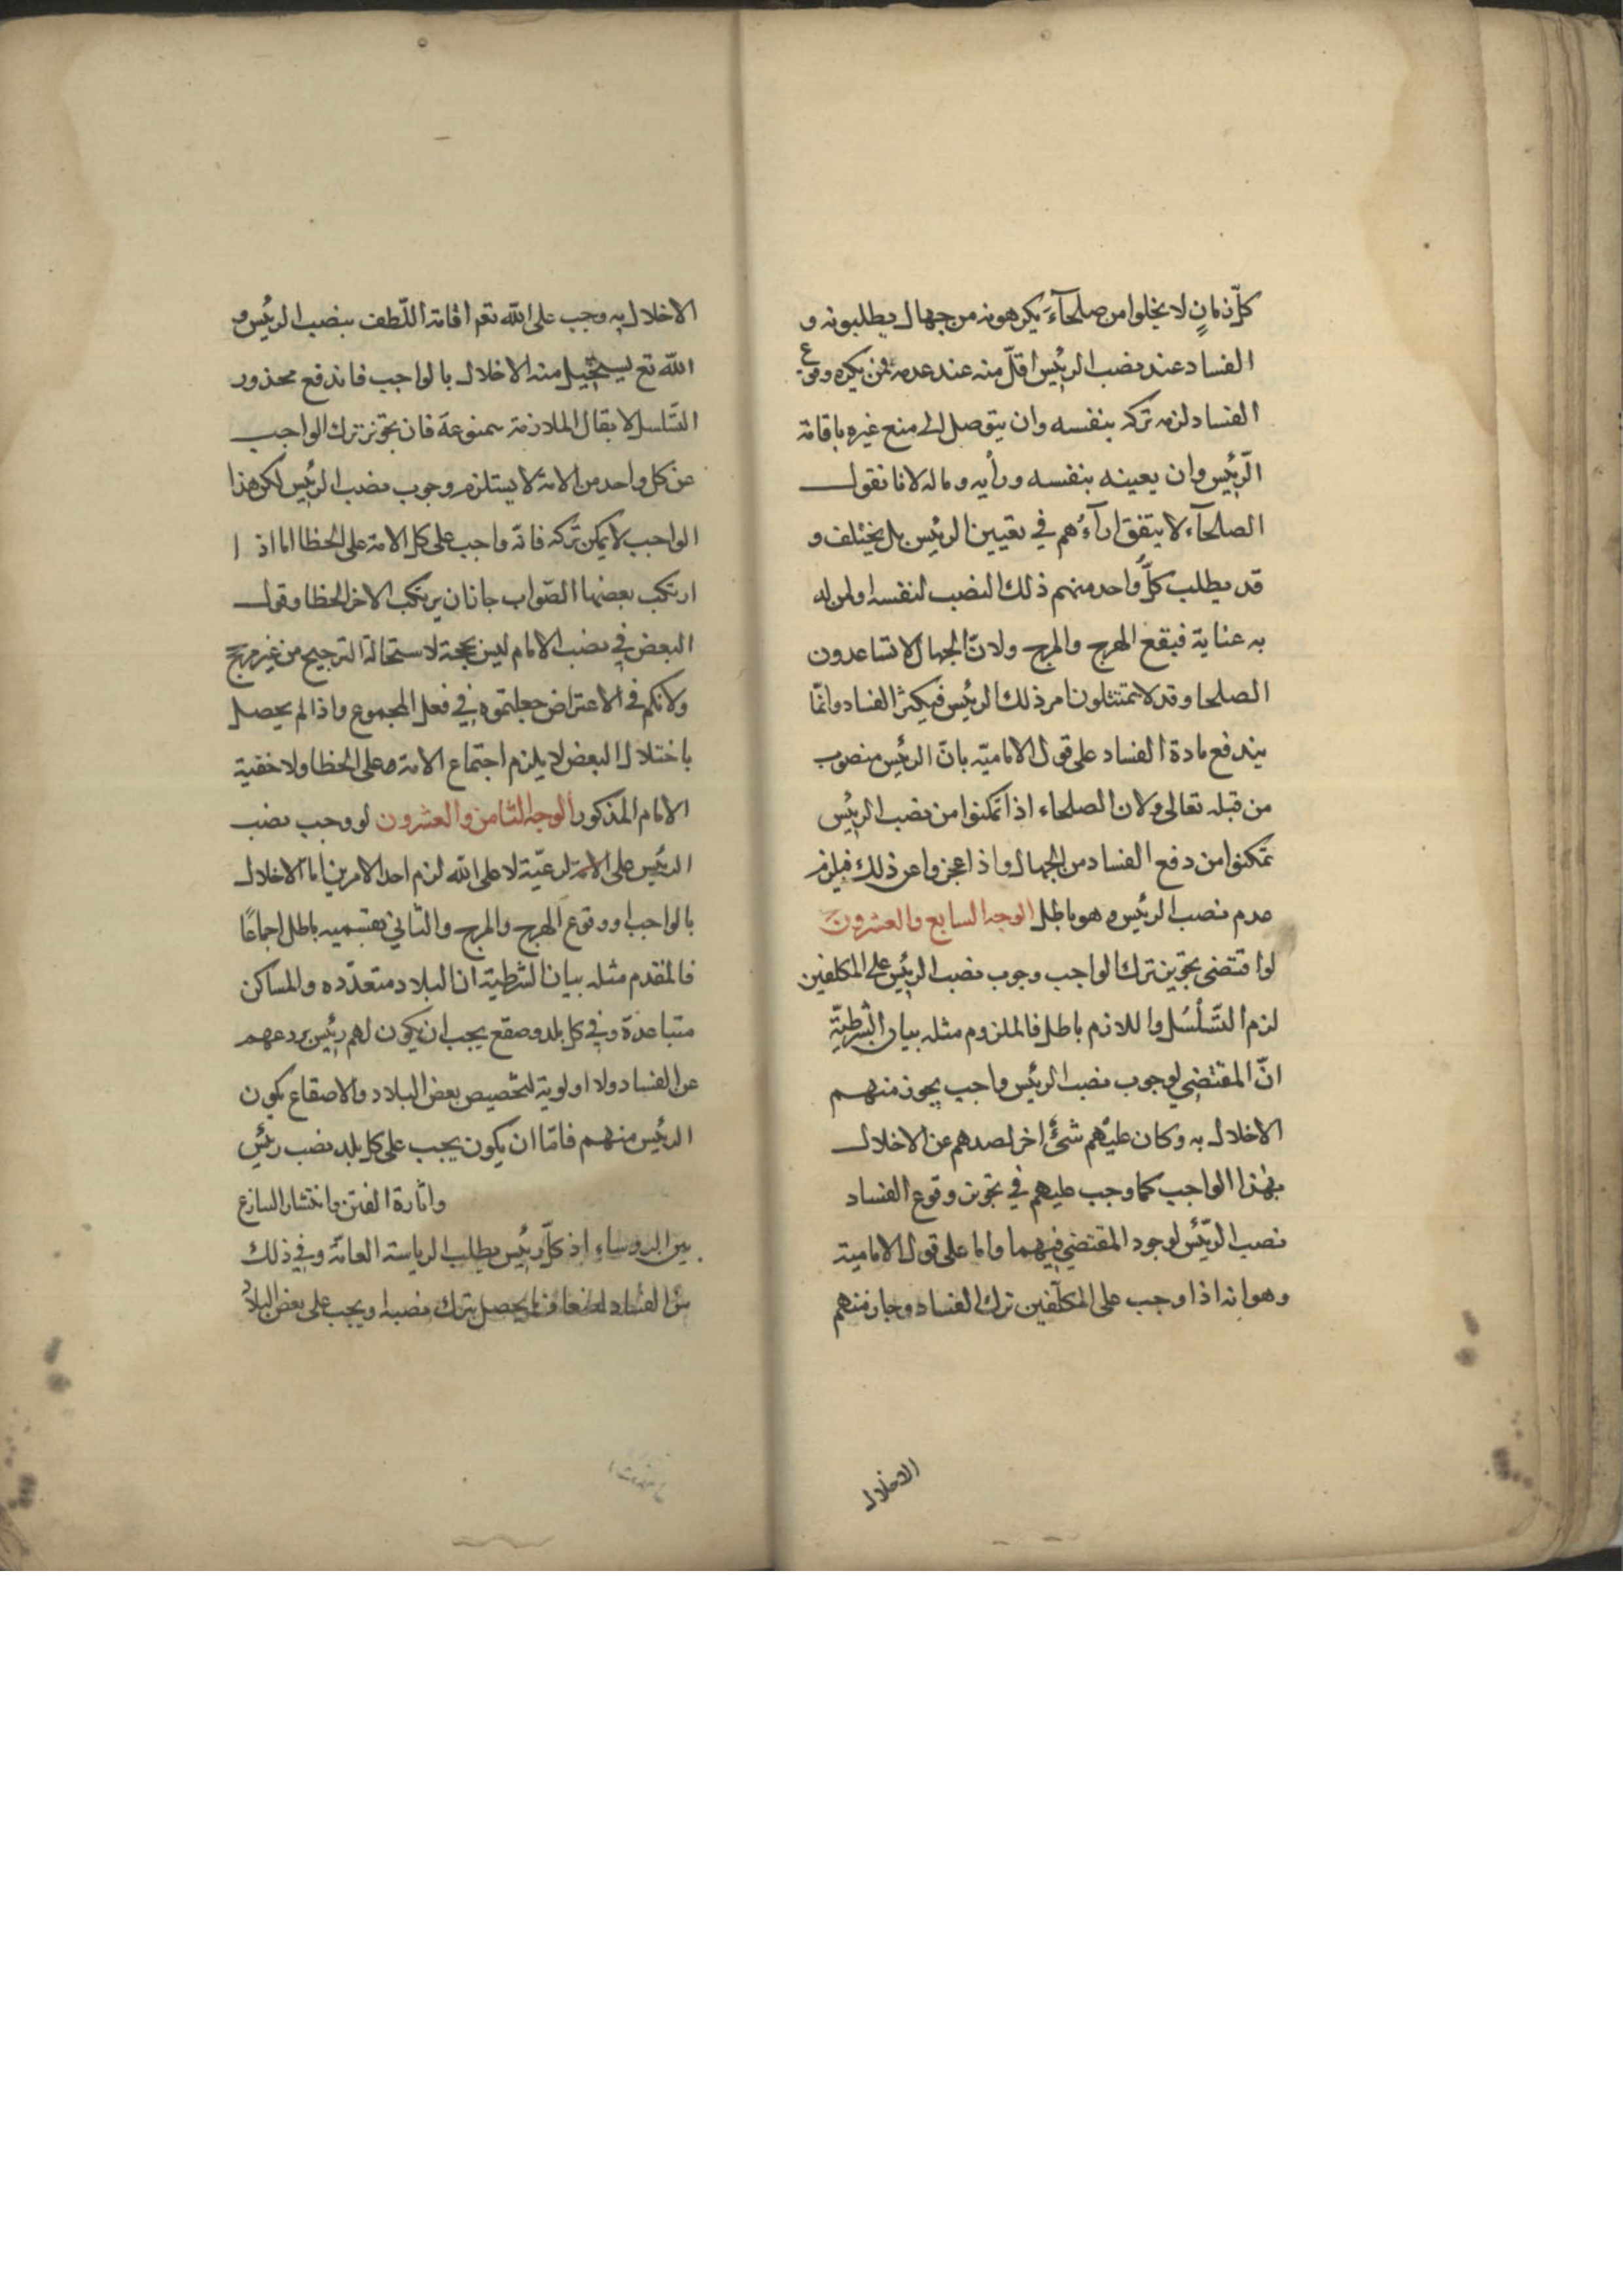 كلّ زمانٍ لا يخلوا من صلحآءَ يكرهونه من جهال يطلبونه و
الفساد عند نصب الرئيس اقلّ منه عند عدمه فمن يكره وقوع
الفساد لزمه تركه بنفسه وان يتوصل الى منع غيره باقامة
الرّئيس وان يعينه بنفسه ورأيه وماله لانا نقول
الصلحآء لا يتفق ارآءُهم في تعيين الرئيس بل يختلف و
قد يطلب كلّ واحد منهم ذلك النصب لنفسه او لمن له
به عناية فيقع الهرج والمرج ولانّ الجهال لا تساعدون
الصلحا وقد لا يمتثلون امر ذلك الرئيس فيكثر الفساد وانمّا
يندفع مادة الفساد على قول الاماميّة بانّ الرئيس منصوب
من قبله تعالى ولان الصلحاء اذا تمكنوا من نصب الرئيس
تمكنوا من دفع الفساد من الجهال واذا عجزوا عن ذلك فيلزم
عدم نصب الرئيس وهو باطل الوجه السابع والعشرون
لو اقتضى تجويز ترك الواجب وجوب نصب الرئيس على المكلفين
لزم التَّسَلْسُل واللازم باطل فالملزوم مثله بيان الشرطيّة
انّ المقتضي لوجوب نصب الرئيس واجب يجوز منهم
الاخلال به وكان عليهم شئ اخر لصدهم عن الاخلال
بهذا الواجب كما وجب عليهم في تجويز وقوع الفساد
نصب الرّئيس لوجود المقتضي فيهما واما على قول الامامية
وهو انه اذا وجب على المكلّفين ترك الفساد وجاز منهم
الاخلال
الاخلال به وجب على الله تعم اقامة اللّطف بنصب الرئيس و
الله تع يستحيل منه الاخلال بالواجب فاندفع محذور
التَّسلسل لا يقال الملازمة ممنوعة فان تجويز ترك الواجب
عن كل واحد من الامة لا يستلزم وجوب نصب الرئيس لكن هذا
الواجب لا يمكن تركه فانّه واجب على كل الامة على الخطا اما اذا
ارتكب بعضها الصّواب جاز ان يرتكب الاخر الخطا وقول
البعض في نصب الامام ليس بحجة لاستحالة الترجيح من غير مرجح
ولانكم في الاعتراض جعلتموه في فعل المجموع واذا لم يحصل
باختلال البعض لا يلزم اجتماع الامة على الخطا ولا خفية
الامام المذكور الوجه الثامن والعشرون لو وجب نصب
الرئيس على الامة لرعيّة لا على الله لزم احد الامرين امّا الاخلال
بالواجب او وقوع الهرج والمرج والثاني بقسميه باطل اجماعًا
فالمقدم مثله بيان الشرطية ان البلاد متعدّده والمساكن
متباعدة وفي كل بلد وصقع يجب ان يكون لهم رئيس يردعهم
عن الفساد ولا اولوية لتخصيص بعض البلاد والاصقاع بكون
الرئيس منهم فامّا ان يكون يجب على كل بلد نصب رئيس
واثارة الفتن وانتشار
بين الروساء اذ كلّ رئيس يطلب الرياسة العامّة وفي ذلك
من الفساد يحصل بترك نصبه او يجب على بعض البلاد